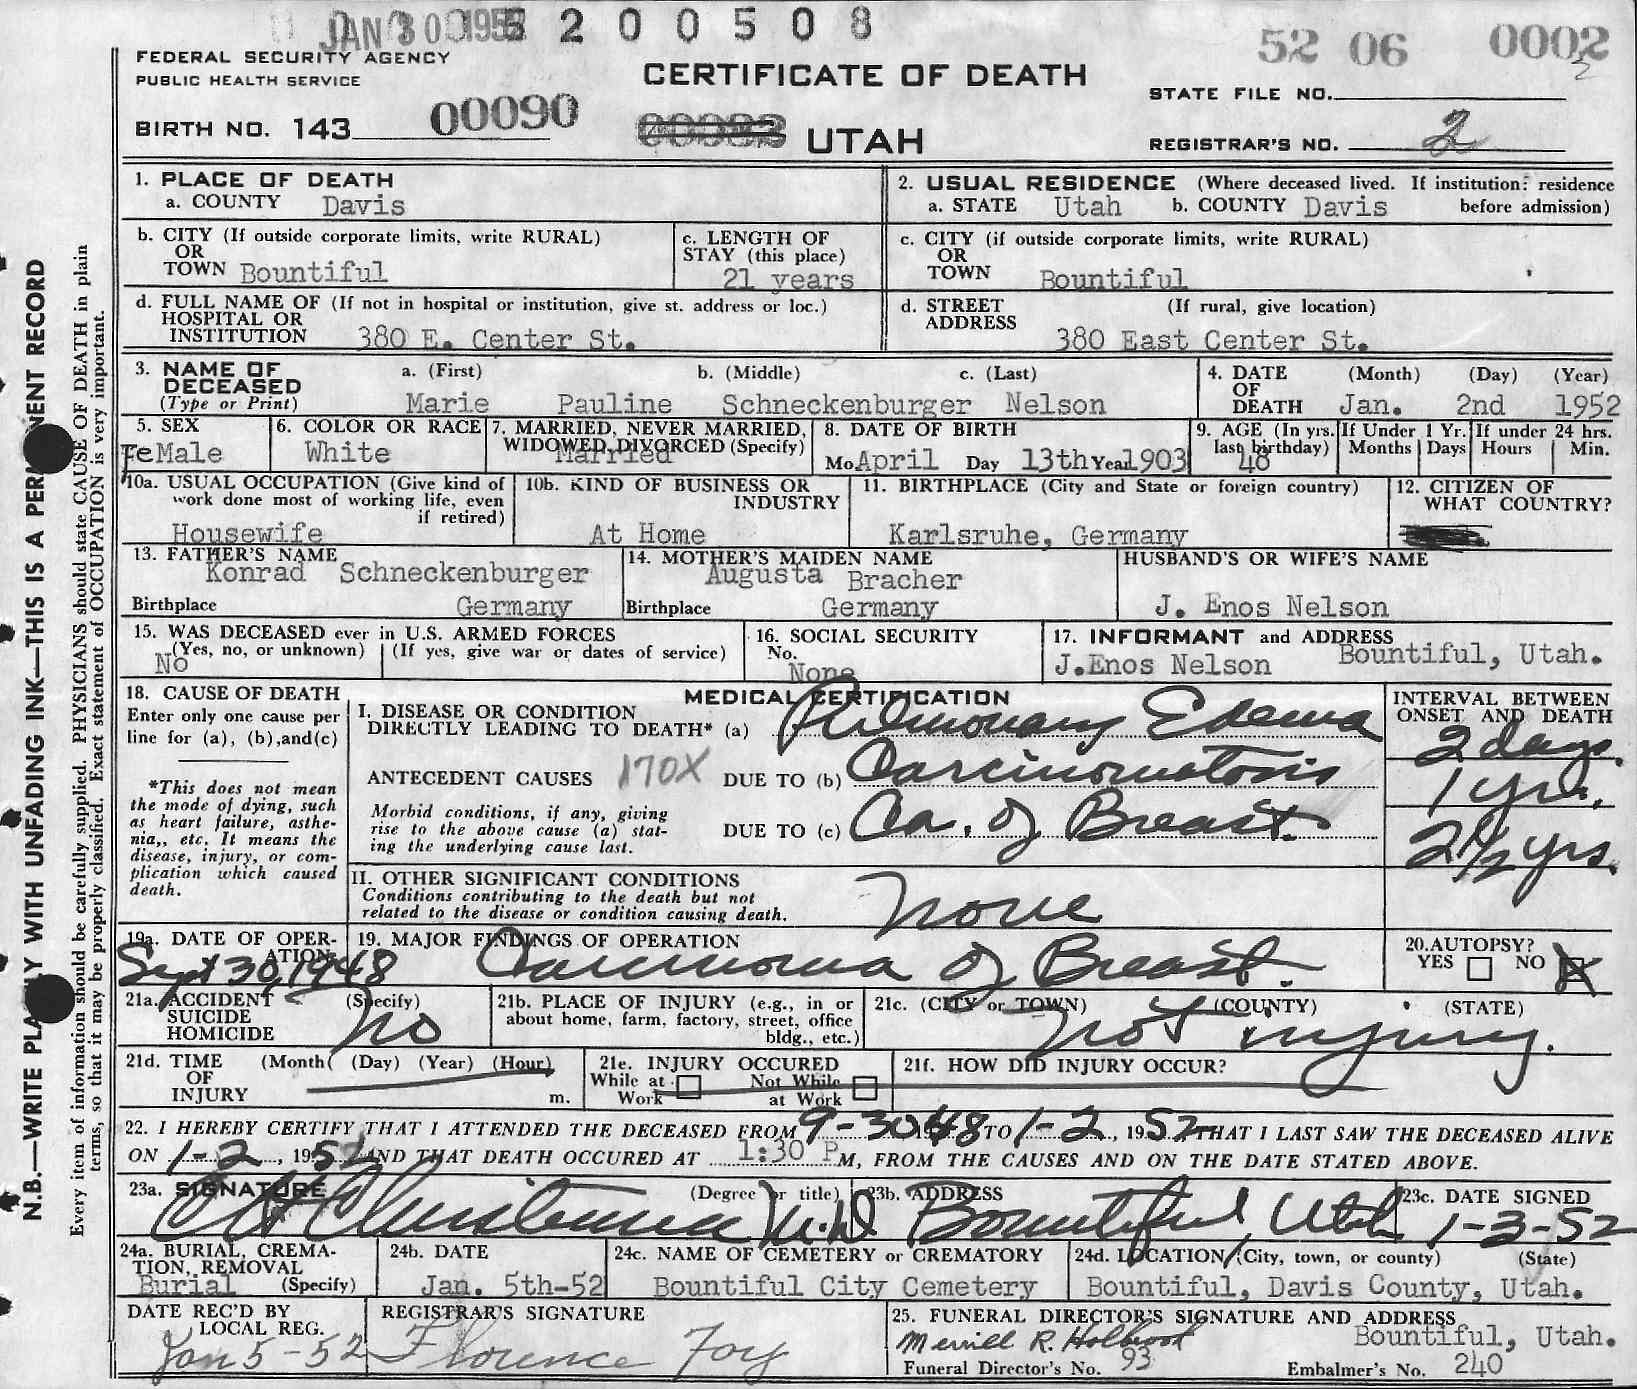 JAN 30 1952 5 2 0 0 5 0 8
52 06 0002
FEDERAL SECURITY AGENCY
PUBLIC HEALTH SERVICE
CERTIFICATE OF DEATH
STATE FILE NO.
BIRTH NO. 143 00090 UTAH
REGISTRAR'S NO. 2
1. PLACE OF DEATH
a. COUNTY Davis
2. USUAL RESIDENCE (Where deceased lived. If institution: residence
a. STATE Utah b. COUNTY Davis before admission)
b. CITY (If outside corporate limits, write RURAL)
OR
TOWN Bountiful
c. LENGTH OF
STAY (this place)
21 years
c. CITY (if outside corporate limits, write RURAL)
OR
TOWN Bountiful
d. FULL NAME OF (If not in hospital or institution, give st. address or loc.)
HOSPITAL OR
INSTITUTION 380 E. Center St.
d. STREET (If rural, give location)
ADDRESS
380 East Center St.
3. NAME OF
DECEASED
(Type or Print)
a. (First) b. (Middle) c. (Last)
Marie Pauline Schneckenburger Nelson
4. DATE (Month) (Day) (Year)
OF
DEATH Jan. 2nd 1952
5. SEX
FeMale
6. COLOR OR RACE
White
7. MARRIED, NEVER MARRIED,
WIDOWED, DIVORCED (Specify)
Married
8. DATE OF BIRTH
Mo April Day 13th Year 1903
9. AGE (In yrs.
last birthday)
48
If Under 1 Yr.
Months Days
If under 24 hrs.
Hours Min.
10a. USUAL OCCUPATION (Give kind of
work done most of working life, even
if retired)
Housewife
10b. KIND OF BUSINESS OR
INDUSTRY
At Home
11. BIRTHPLACE (City and State or foreign country)
Karlsruhe, Germany
12. CITIZEN OF
WHAT COUNTRY?
13. FATHER'S NAME
Konrad Schneckenburger
Birthplace Germany
14. MOTHER'S MAIDEN NAME
Augusta Bracher
Birthplace Germany
HUSBAND'S OR WIFE'S NAME
J. Enos Nelson
15. WAS DECEASED ever in U.S. ARMED FORCES
(Yes, no, or unknown) (If yes, give war or dates of service)
No
16. SOCIAL SECURITY
No.
None
17. INFORMANT and ADDRESS
J.Enos Nelson Bountiful, Utah.
18. CAUSE OF DEATH
Enter only one cause per
line for (a), (b),and(c)
*This does not mean
the mode of dying, such
as heart failure, asthe-
nia,, etc. It means the
disease, injury, or com-
plication which caused
death.
MEDICAL CERTIFICATION
I. DISEASE OR CONDITION
DIRECTLY LEADING TO DEATH* (a) Pulmonary Edema
ANTECEDENT CAUSES 170X DUE TO (b) Carcinomatosis
Morbid conditions, if any, giving
rise to the above cause (a) stat-
ing the underlying cause last.
DUE TO (c) Ca. of Breast.
INTERVAL BETWEEN
ONSET AND DEATH
2 days.
1 yr.
2½ yrs.
II. OTHER SIGNIFICANT CONDITIONS
Conditions contributing to the death but not
related to the disease or condition causing death.
none
19a. DATE OF OPER-
ATION
Sept 30, 1948
19. MAJOR FINDINGS OF OPERATION
Carcinoma of Breast.
20.AUTOPSY?
YES NO X
21a. ACCIDENT (Specify)
SUICIDE
HOMICIDE
no
21b. PLACE OF INJURY (e.g., in or
about home, farm, factory, street, office
bldg., etc.)
21c. (CITY or TOWN) (COUNTY) (STATE)
not injury.
21d. TIME (Month) (Day) (Year) (Hour)
OF
INJURY m.
21e. INJURY OCCURED
While at Not While
Work at Work
21f. HOW DID INJURY OCCUR?
22. I HEREBY CERTIFY THAT I ATTENDED THE DECEASED FROM 9-30 1948 TO 1-2, 1952 THAT I LAST SAW THE DECEASED ALIVE
ON 1-2, 1952 AND THAT DEATH OCCURED AT 1:30 P M, FROM THE CAUSES AND ON THE DATE STATED ABOVE.
23a. SIGNATURE (Degree or title)
M.D.
23b. ADDRESS
Bountiful, Utah
23c. DATE SIGNED
1-3-52
24a. BURIAL, CREMA-
TION, REMOVAL
Burial (Specify)
24b. DATE
Jan. 5th-52
24c. NAME OF CEMETERY or CREMATORY
Bountiful City Cemetery
24d. LOCATION (City, town, or county) (State)
Bountiful, Davis County, Utah.
DATE REC'D BY
LOCAL REG.
Jan 5-52
REGISTRAR'S SIGNATURE
Florence Foy
25. FUNERAL DIRECTOR'S SIGNATURE AND ADDRESS
Merrill R. Holbrook Bountiful, Utah.
Funeral Director's No. 93 Embalmer's No. 240
N.B.—WRITE PLAINLY WITH UNFADING INK—THIS IS A PERMANENT RECORD
Every item of information should be carefully supplied. PHYSICIANS should state CAUSE OF DEATH in plain
terms, so that it may be properly classified. Exact statement of OCCUPATION is very important.